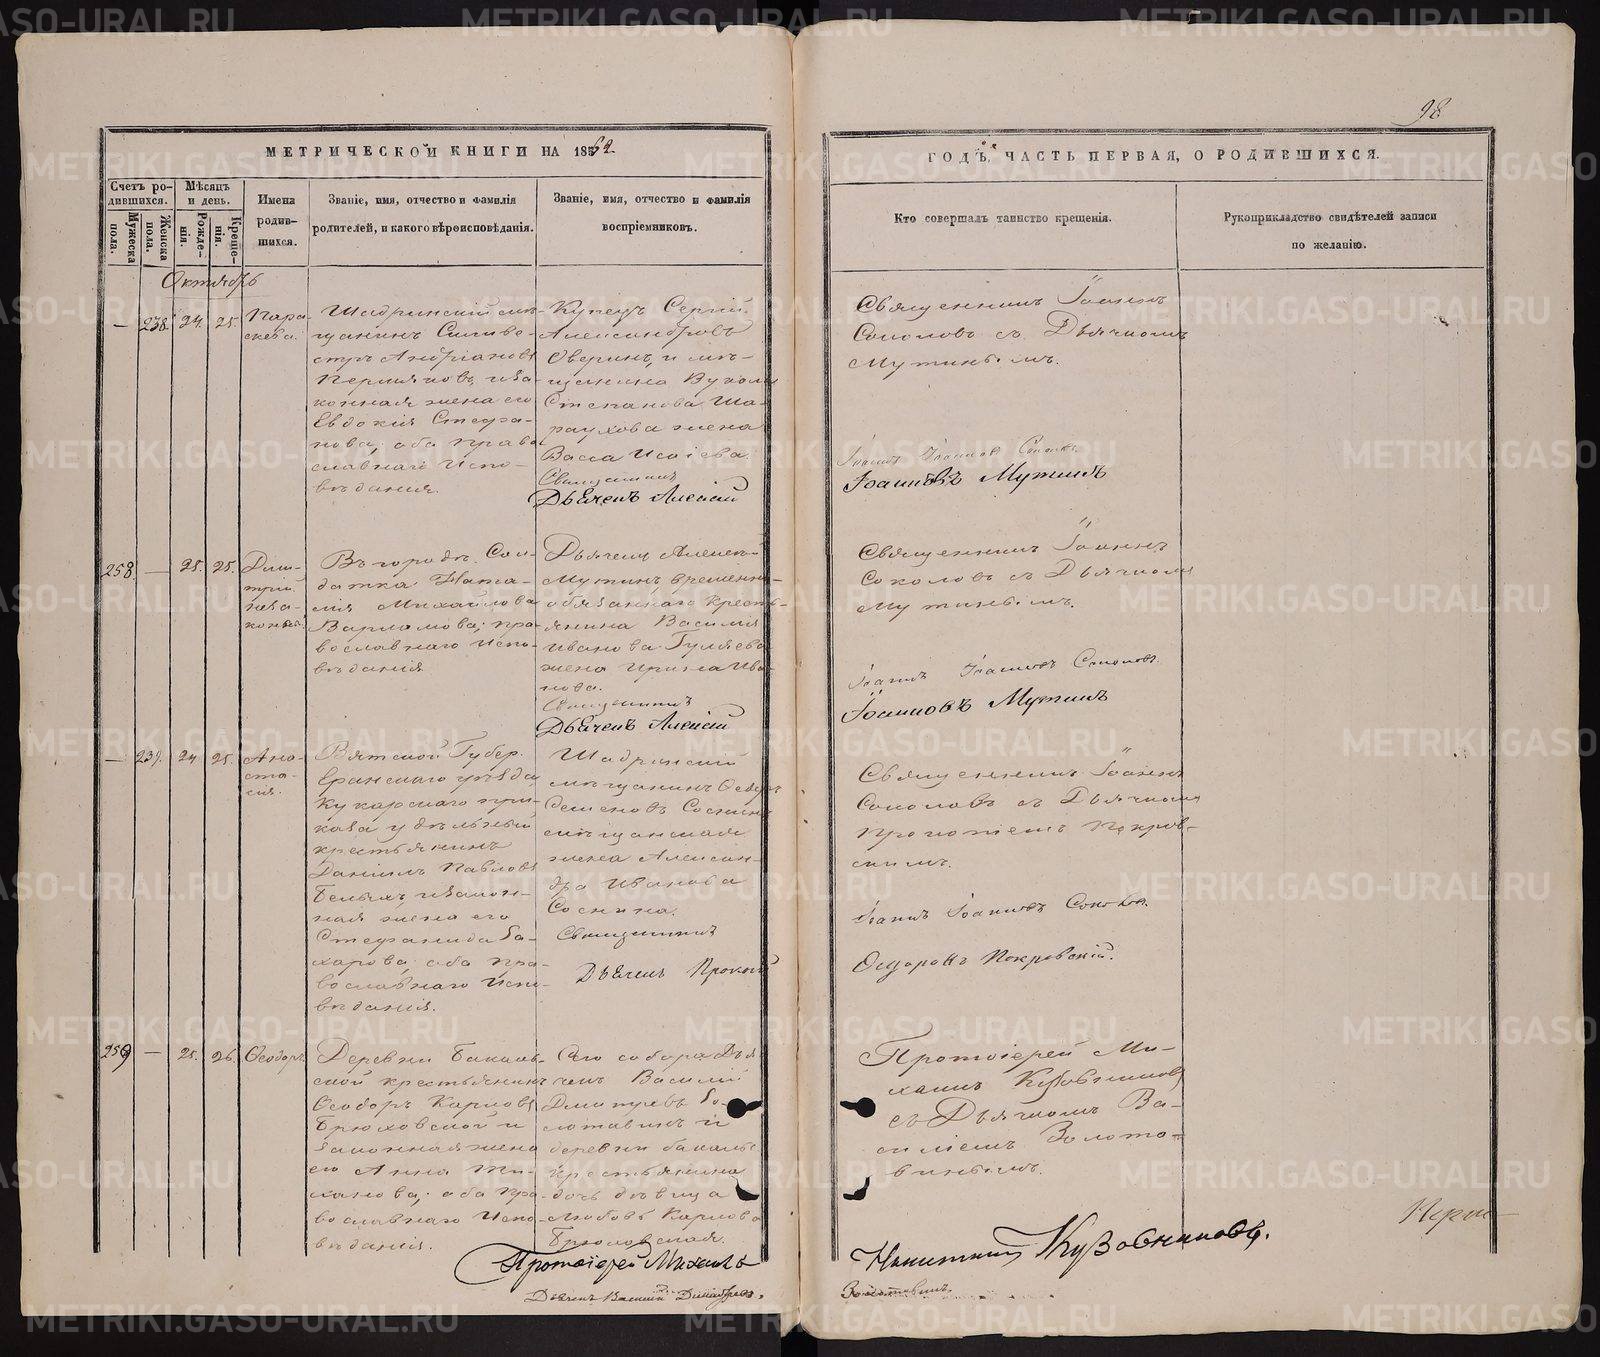 98
МЕТРИЧЕСКОЙ КНИГИ НА 1862
ГОДЪ, ЧАСТЬ ПЕРВАЯ, О РОДИВШИХСЯ.
Счетъ ро-
дившихся.
Мужеска
пола.
Женска
пола.
Мѣсяцъ
и день.
Рожде-
нія.
Креще-
нія.
Имена
родив-
шихся.
Званіе, имя, отчество и фамилія
родителей, и какого вѣроисповѣданія.
Званіе, имя, отчество и фамилія
воспріемниковъ.
Кто совершалъ таинство крещенія.
Рукоприкладство свидѣтелей записи
по желанію.
Октябрь
— 238 24. 25.
Пара-
скева.
Шадринскій мѣ-
щанинъ Сильве-
стръ Андріановъ
Пермяковъ, и за-
конная жена его
Евдокія Стефа-
нова, оба право
славнаго испо-
вѣданія.
Купецъ Сергій
Александровъ
Оверинъ, и мѣ-
щанина Вукола
Степанова Ша-
раухова жена
Васса Исаіева.
Священникъ
Дьячекъ Алексій
Священникъ Іоаннъ
Соколовъ съ Дьячкомъ
Мутинымъ.
Іоаннъ Іоанновъ Соколовъ
Іоанновъ Мутинъ
258. — 25. 25.
Дими-
трій
неза-
конный.
Въ городѣ Сол-
датка Ната-
лія Михайлова
Варламова; пра-
вославнаго испо-
вѣданія
Дьячекъ Алексѣй
Мутинъ, временно-
обязаннаго кресть-
янина Василія
Иванова Гуляева
жена Ирина Ива-
нова.
Священникъ
Дьячекъ Алексій
Священникъ Іоаннъ
Соколовъ съ Дьячкомъ
Мутинымъ.
Іоаннъ Іоанновъ Соколовъ.
Іоанновъ Мутинъ
— 239. 24 25.
Ана-
ста-
сія.
Вятской Губер.
Яранскаго уѣзда,
Кукарскаго при-
каза удѣльный
крестьянинъ
Даніилъ Павловъ
и закон-
ная жена его
Стефанида За-
харова, оба пра-
вославнаго испо-
вѣданія.
Шадринскій
мѣщанинъ
Семеновъ Соснинъ
мѣщанская
жена Алексан-
дра Иванова
Соснина.
Священникъ
Дьячекъ Прокопій
Священникъ Іоаннъ
Соколовъ съ Дьячкомъ
Прокопіемъ Покров-
скимъ.
Іоаннъ Іоанновъ Соколовъ.
Ѳедоровъ Покровскій.
259 — 25. 26.
Ѳеодоръ.
Деревни Бакаль-
ской крестьянинъ
Ѳеодоръ Карповъ
Брюховской и
законная жена
его Анна
оба пра-
вославнаго испо-
вѣданія.
Сего собора Дья-
чекъ Василій
Димитріевъ Зо-
лотавинъ и
деревни Бакальс.
крестьянина
дочь дѣвица
Любовь Карпова
Брюховская.
Протоіерей Михаилъ
Дьячекъ Василій Димитріевъ
Протоіерей Ми-
хаилъ Кузовниковъ
съ Дьячкомъ Ва-
силіемъ Золота-
винымъ.
Никитинъ Кузовниковъ.
Золотавинъ.